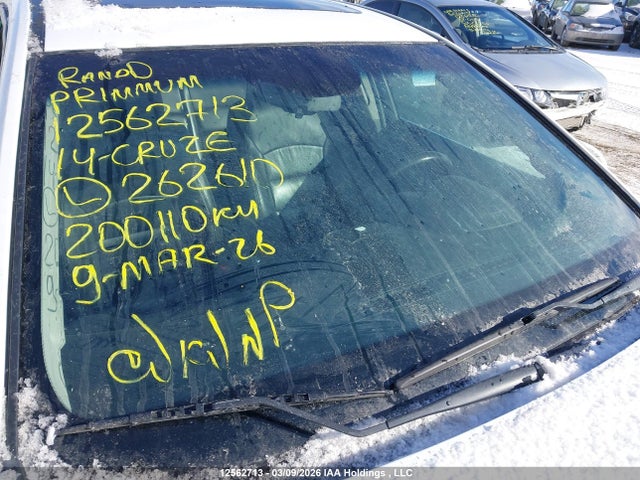 RANDD
PRIMMUM
12562713
14-CRUZE
L 26261D
200110KM
9-MAR-26
W/K/NP
12562713 - 03/09/2026 IAA Holdings , LLC